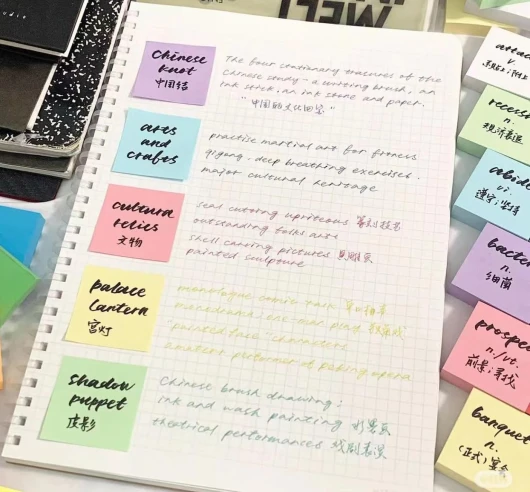 Chinese
knot
中国结
The four stationary treasures of the
Chinese study - a writing brush, an
ink stick, an ink stone and paper.
"中国的文化四宝"
arts
and
crafts
practise martial art for
qigong. deep breathing exercises.
major cultural heritage
cultural
relics
文物
seal cutting 篆刻
outstanding folks arts
shell carving pictures 贝雕画
painted sculpture
palace
lantern
宫灯
monologue comic talk 单口相声
one-man play
painted face characters
amateur performer of peking opera
shadow
puppet
皮影
Chinese brush drawing;
ink and wash painting 水墨画
theatrical performances 戏剧表演
attac
v.
recess
n.
经济衰退
abide
vi.
遵守;坚持
bacter
n.
细菌
prospe
n./vt.
前景;寻找
banquet
n.
(正式)宴会